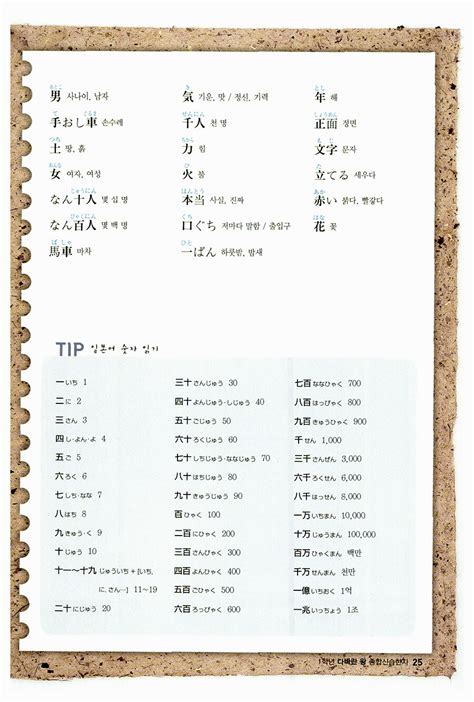 おとこ
男 사나이, 남자
て ぐるま
手おし車 손수레
つち
土 땅, 흙
おんな
女 여자, 여성
じゅうにん
なん十人 몇 십 명
ひゃくにん
なん百人 몇 백 명
ば しゃ
馬車 마차
き
気 기운, 맛 / 정신, 기력
せんにん
千人 천 명
ちから
力 힘
ひ
火 불
ほんとう
本当 사실, 진짜
くち
口ぐち 저마다 말함 / 출입구
ひと
一ばん 하룻밤, 밤새
とし
年 해
しょうめん
正面 정면
も じ
文字 문자
た
立てる 세우다
あか
赤い 붉다, 빨갛다
はな
花 꽃
TIP 일본어 숫자 읽기
一 いち 1
二 に 2
三 さん 3
四 し・よん・よ 4
五 ご 5
六 ろく 6
七 しち・なな 7
八 はち 8
九 きゅう・く 9
十 じゅう 10
十一~十九 じゅういち + [いち,
に, さん…] 11~19
二十 にじゅう 20
三十 さんじゅう 30
四十 よんじゅう・しじゅう 40
五十 ごじゅう 50
六十 ろくじゅう 60
七十 しちじゅう・ななじゅう 70
八十 はちじゅう 80
九十 きゅうじゅう 90
百 ひゃく 100
二百 にひゃく 200
三百 さんびゃく 300
四百 よんひゃく 400
五百 ごひゃく 500
六百 ろっぴゃく 600
七百 ななひゃく 700
八百 はっぴゃく 800
九百 きゅうひゃく 900
千 せん 1,000
三千 さんぜん 3,000
六千 ろくせん 6,000
八千 はっせん 8,000
一万 いちまん 10,000
十万 じゅうまん 100,000
百万 ひゃくまん 백만
千万 せんまん 천만
一億 いちおく 1억
一兆 いっちょう 1조
1학년 왕 종합신습한자 25